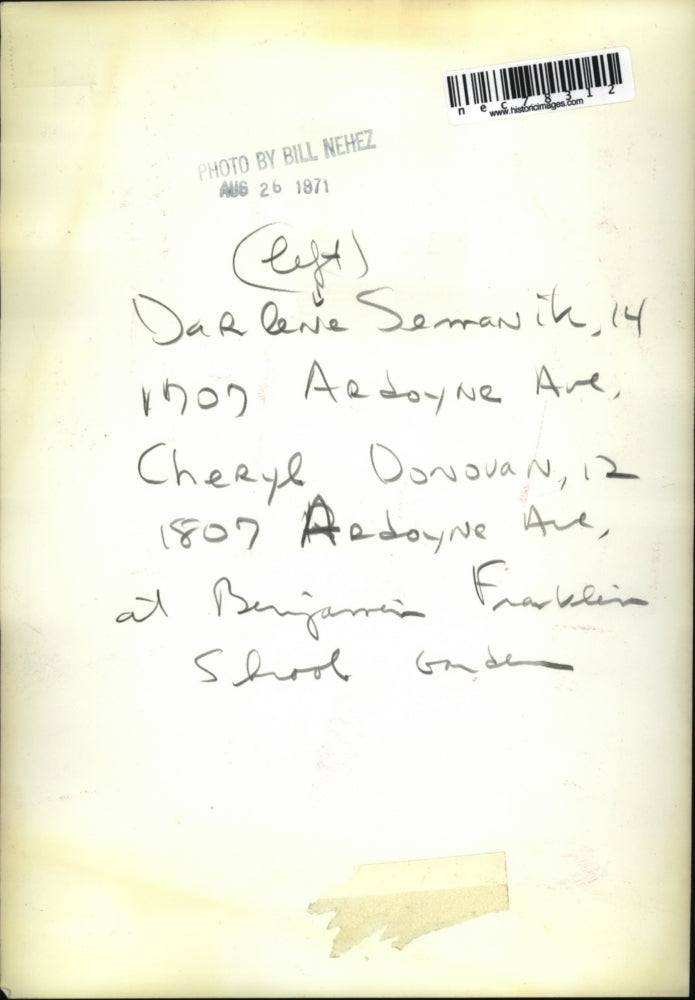 nec78312
www.historicimages.com
PHOTO BY BILL NEHEZ
AUG 26 1971
(left)
Darlene Semanik, 14
1707 Ardoyne Ave,
Cheryl Donovan, 12
1807 Ardoyne Ave,
at Benjamin Franklin
School Garden